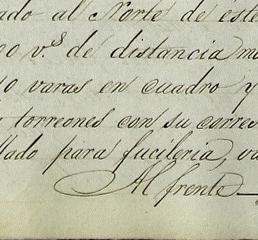 ado al Norte de este
00 v.s de distancia m
0 varas en cuadro y
torreones con su corres
llado para fucileria, va
Al frente